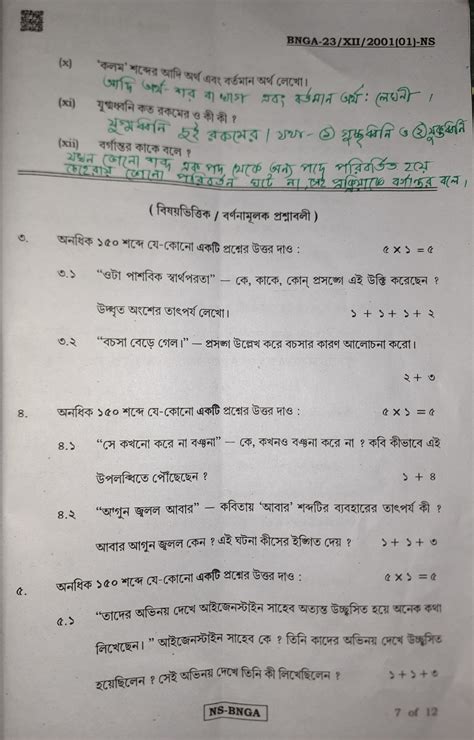 BNGA-23/XII/2001(01)-NS
(x) 'কলম' শব্দের আদি অর্থ এবং বর্তমান অর্থ লেখো।
আদি অর্থ- শর বা খাগ এবং বর্তমান অর্থ: লেখনী ।
(xi) যুগ্মধ্বনি কত রকমের ও কী কী ?
যুগ্মধ্বনি দুই রকমের। যথা- ① যুক্তধ্বনি ও ② যুক্তধ্বনি
(xii) বর্গান্তর কাকে বলে ?
যখন কোনো শব্দ এক পদ থেকে অন্য পদে পরিবর্তিত হয়ে
চেহারায় কোনো পরিবর্তন ঘটে না, সেই প্রক্রিয়াকে বর্গান্তর বলে।
( বিষয়ভিত্তিক / বর্ণনামূলক প্রশ্নাবলী )
৩. অনধিক ১৫০ শব্দে যে-কোনো একটি প্রশ্নের উত্তর দাও : ৫ × ১ = ৫
৩.১ “ওটা পাশবিক স্বার্থপরতা” — কে, কাকে, কোন্ প্রসঙ্গে এই উক্তি করেছেন ?
উদ্ধৃত অংশের তাৎপর্য লেখো। ১ + ১ + ১ + ২
৩.২ “বচসা বেড়ে গেল।” — প্রসঙ্গ উল্লেখ করে বচসার কারণ আলোচনা করো।
২ + ৩
৪. অনধিক ১৫০ শব্দে যে-কোনো একটি প্রশ্নের উত্তর দাও : ৫ × ১ = ৫
৪.১ “সে কখনো করে না বঞ্চনা” — কে, কখনও বঞ্চনা করে না ? কবি কীভাবে এই
উপলব্ধিতে পৌঁছেছেন ? ১ + ৪
৪.২ “আগুন জ্বলল আবার” — কবিতায় ‘আবার’ শব্দটির ব্যবহারের তাৎপর্য কী ?
আবার আগুন জ্বলল কেন ? এই ঘটনা কীসের ইঙ্গিত দেয় ? ১ + ১ + ৩
৫. অনধিক ১৫০ শব্দে যে-কোনো একটি প্রশ্নের উত্তর দাও : ৫ × ১ = ৫
৫.১ “তাদের অভিনয় দেখে আইজেনস্টাইন সাহেব অত্যন্ত উচ্ছ্বসিত হয়ে অনেক কথা
লিখেছেন। ” আইজেনস্টাইন সাহেব কে ? তিনি কাদের অভিনয় দেখে উচ্ছ্বসিত
হয়েছিলেন ? সেই অভিনয় দেখে তিনি কী লিখেছিলেন ? ১ + ১ + ৩
NS-BNGA
7 of 12